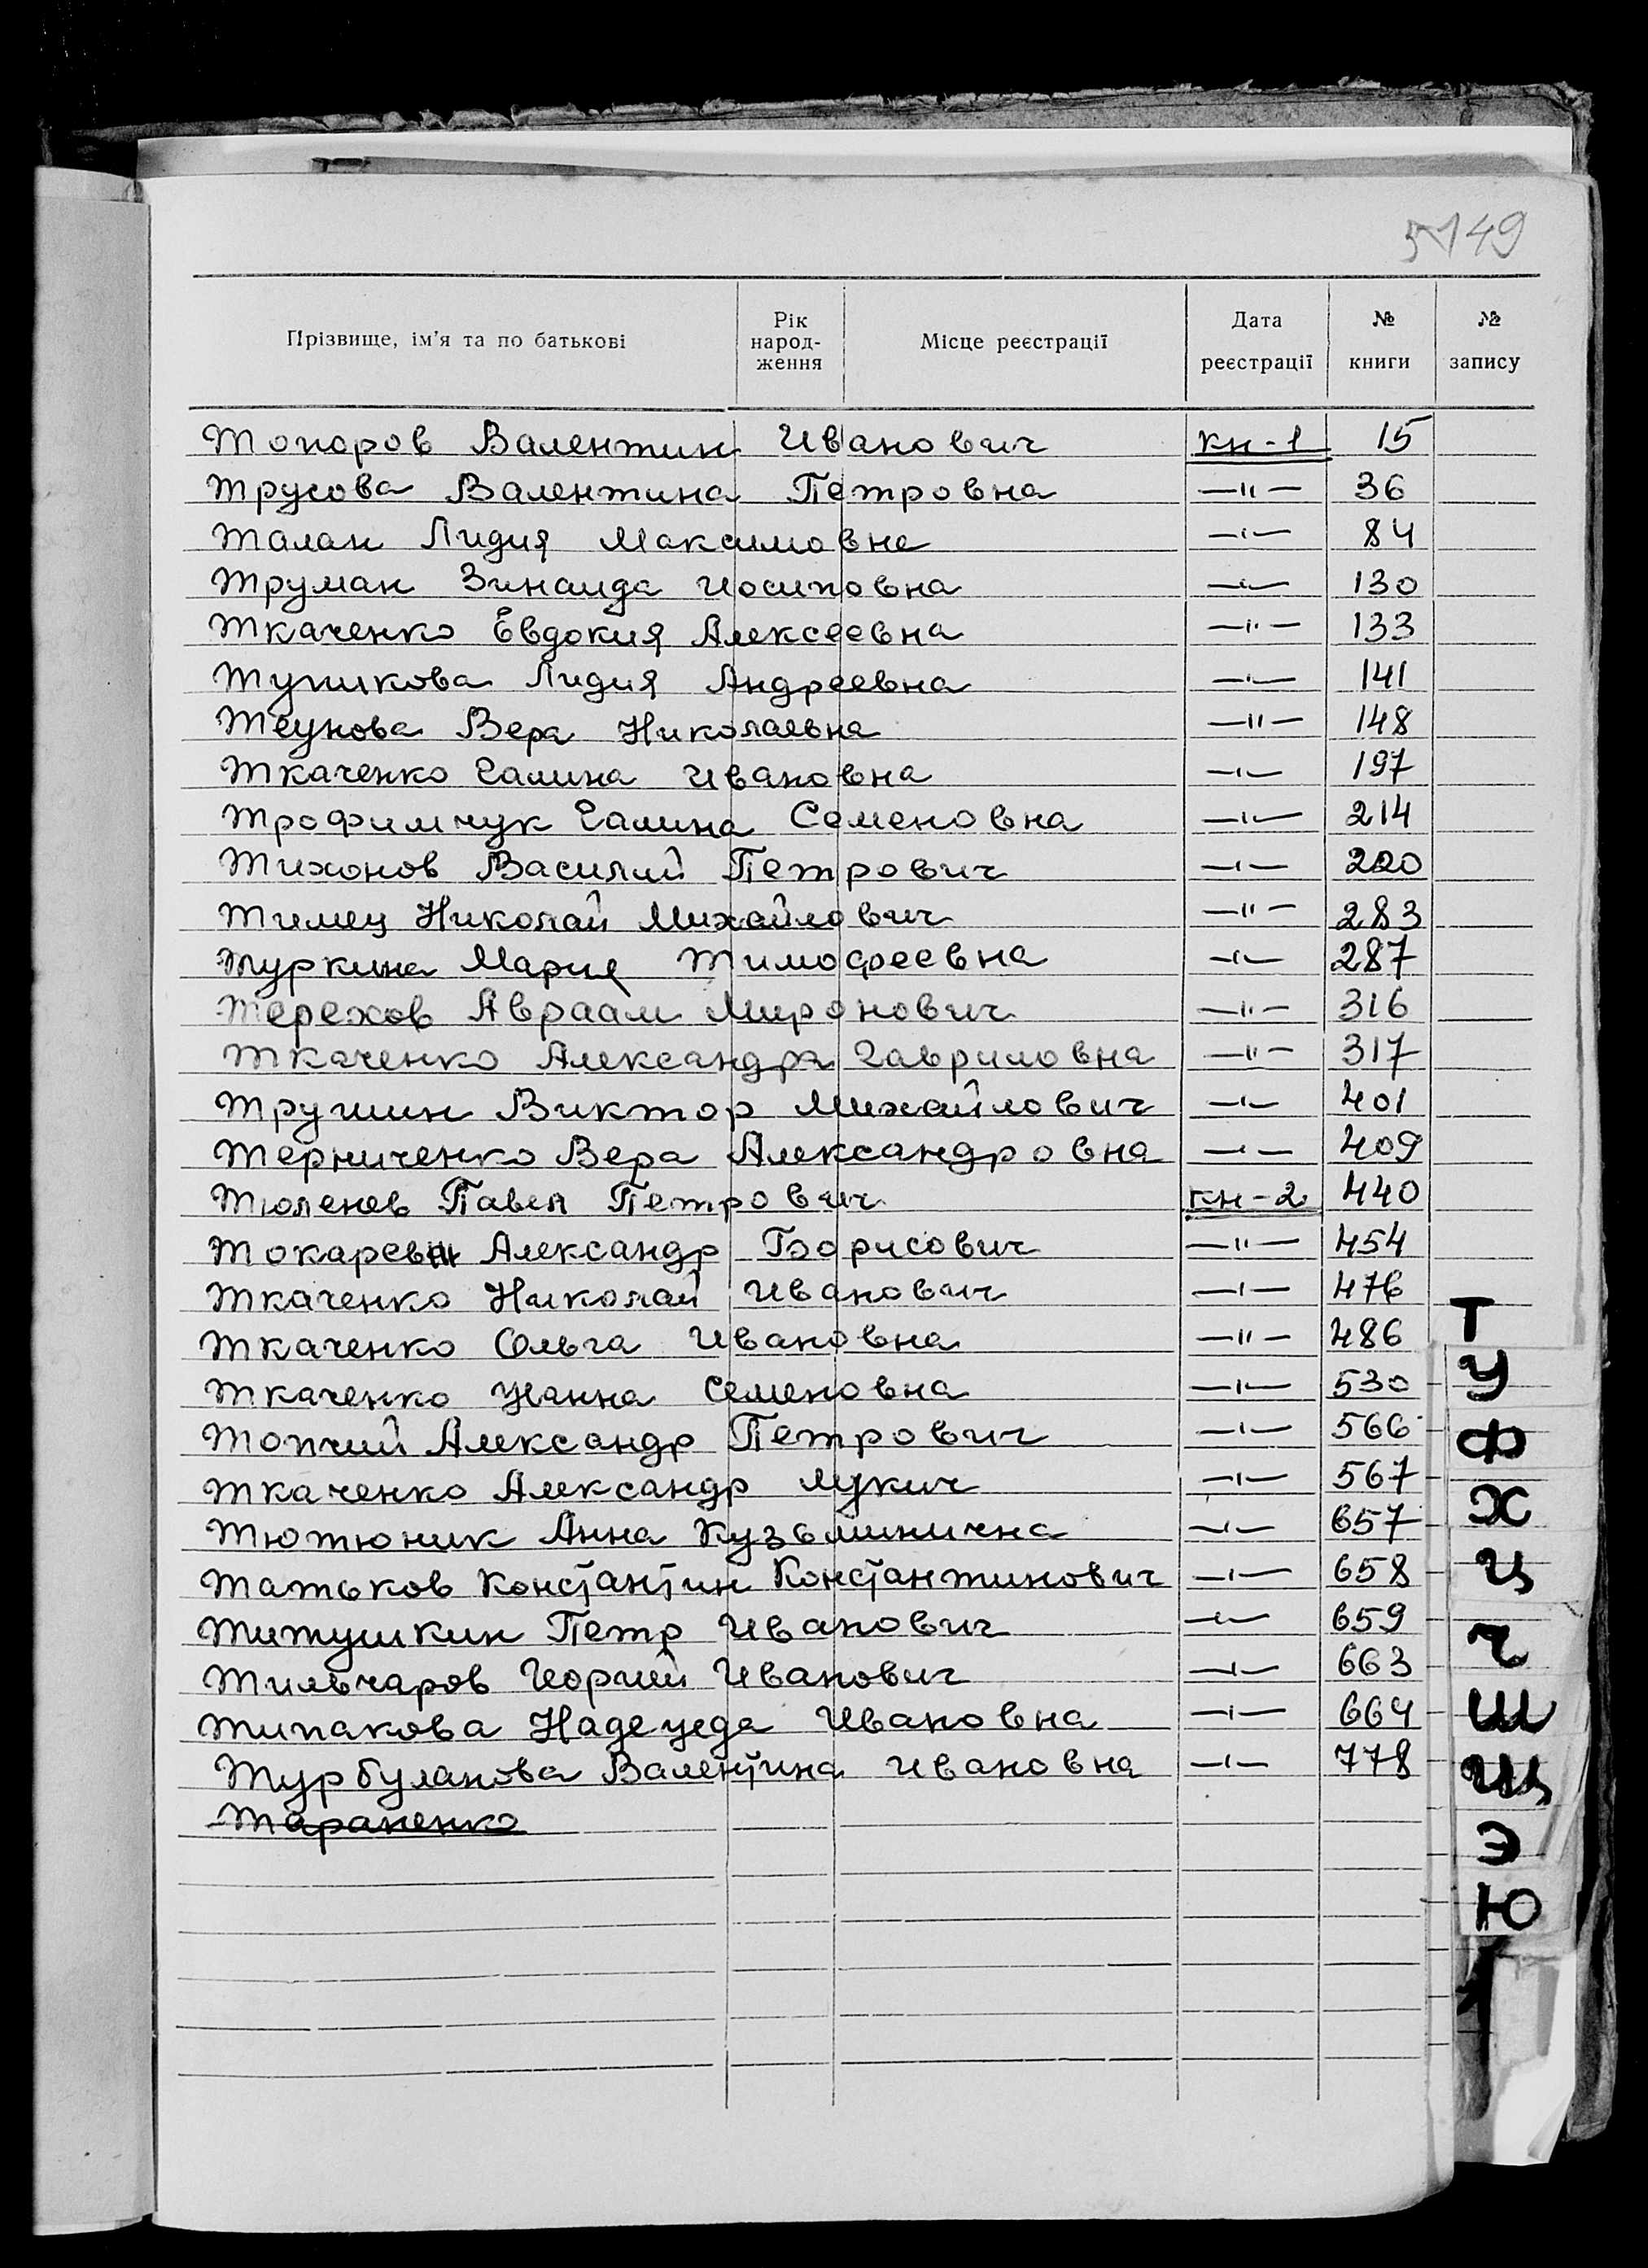 149
Прізвище, ім'я та по батькові Рік народ-ження Місце реєстрації Дата реєстрації № книги № запису
Топоров Валентин Иванович кн-1 15
Трусова Валентина Петровна —"— 36
Талан Лидия Максимовна —"— 84
Труман Зинаида Иосиповна —"— 130
Ткаченко Евдокия Алексеевна —"— 133
Тупикова Лидия Андреевна —"— 141
Теунова Вера Николаевна —"— 148
Ткаченко Галина Ивановна —"— 197
Трофимчук Галина Семеновна —"— 214
Тихонов Василий Петрович —"— 220
Тимец Николай Михайлович —"— 283
Туркина Мария Тимофеевна —"— 287
Терехов Авраам Миронович —"— 316
Ткаченко Александра Гавриловна —"— 317
Трушин Виктор Михайлович —"— 401
Терниченко Вера Александровна —"— 409
Тюленев Павел Петрович кн-2 440
Токарев Александр Борисович —"— 454
Ткаченко Николай Иванович —"— 476
Ткаченко Ольга Ивановна —"— 486
Ткаченко Жанна Семеновна —"— 530
Топчий Александр Петрович —"— 566
Ткаченко Александр Лукич —"— 567
Тютюник Анна Кузьминична —"— 657
Татьков Константин Константинович —"— 658
Титушкин Петр Иванович —"— 659
Тильчаров Иорий Иванович —"— 663
Типакова Надежда Ивановна —"— 664
Турбуланова Валентина Ивановна —"— 778
Тараненко
Т
У
Ф
Х
Ц
Ч
Ш
Щ
Э
Ю